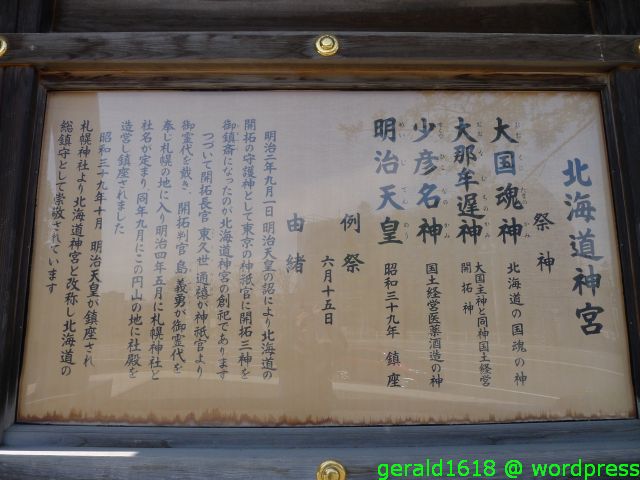 北海道神宮
祭神
大国魂神 北海道の国魂の神
大那牟遅神 大国主神と同神国土経営
開拓神
少彦名神 国土経営医薬酒造の神
明治天皇 昭和三十九年 鎮座
例祭 六月十五日
由緒
明治二年九月一日 明治天皇の詔により北海道の
開拓の守護神として東京の神祇官に開拓三神を
御鎮斎になったのが北海道神宮の創祀であります
つづいて開拓長官 東久世 通禧が神祇官より
御霊代を戴き、開拓判官 島 義勇が御霊代を
奉じ札幌の地に入り明治四年五月に札幌神社と
社名が定まり同年九月にこの円山の地に社殿を
造営し鎮座されました
昭和三十九年十月 明治天皇が鎮座され
札幌神社より北海道神宮と改称し北海道の
総鎮守として崇敬されています
gerald1618 @ wordpress